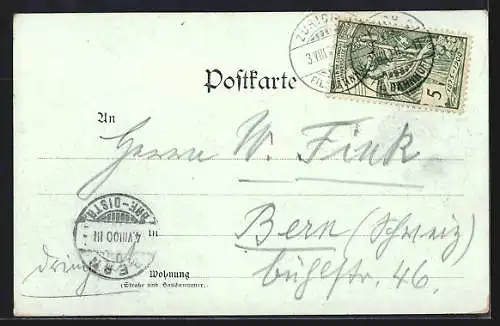 ZÜRICH
3.VIII.
FIL
5
Postkarte
An
Herrn W. Fink
BRF-DISTR.
4.VIII.00 III
BERN
in Bern (Schweiz)
Wohnung Bühlstr. 46.
(Straße und Hausnummer)